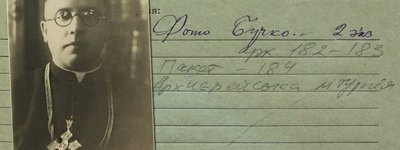 ня:
Фото Бучко. - 2 экз
арк. 182-183
Пакет - 184
Архиерейська